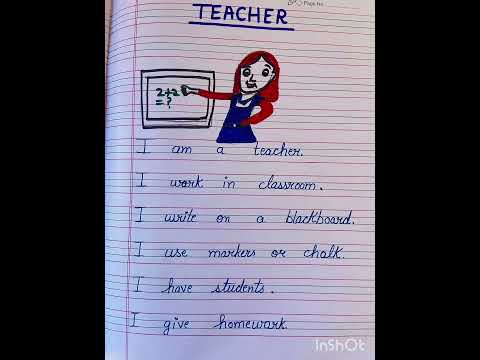 Page No.
TEACHER
2+2
=?
I am a teacher.
I work in classroom.
I write on a blackboard.
I use markers or chalk.
I have students.
I give homework.
InShOt